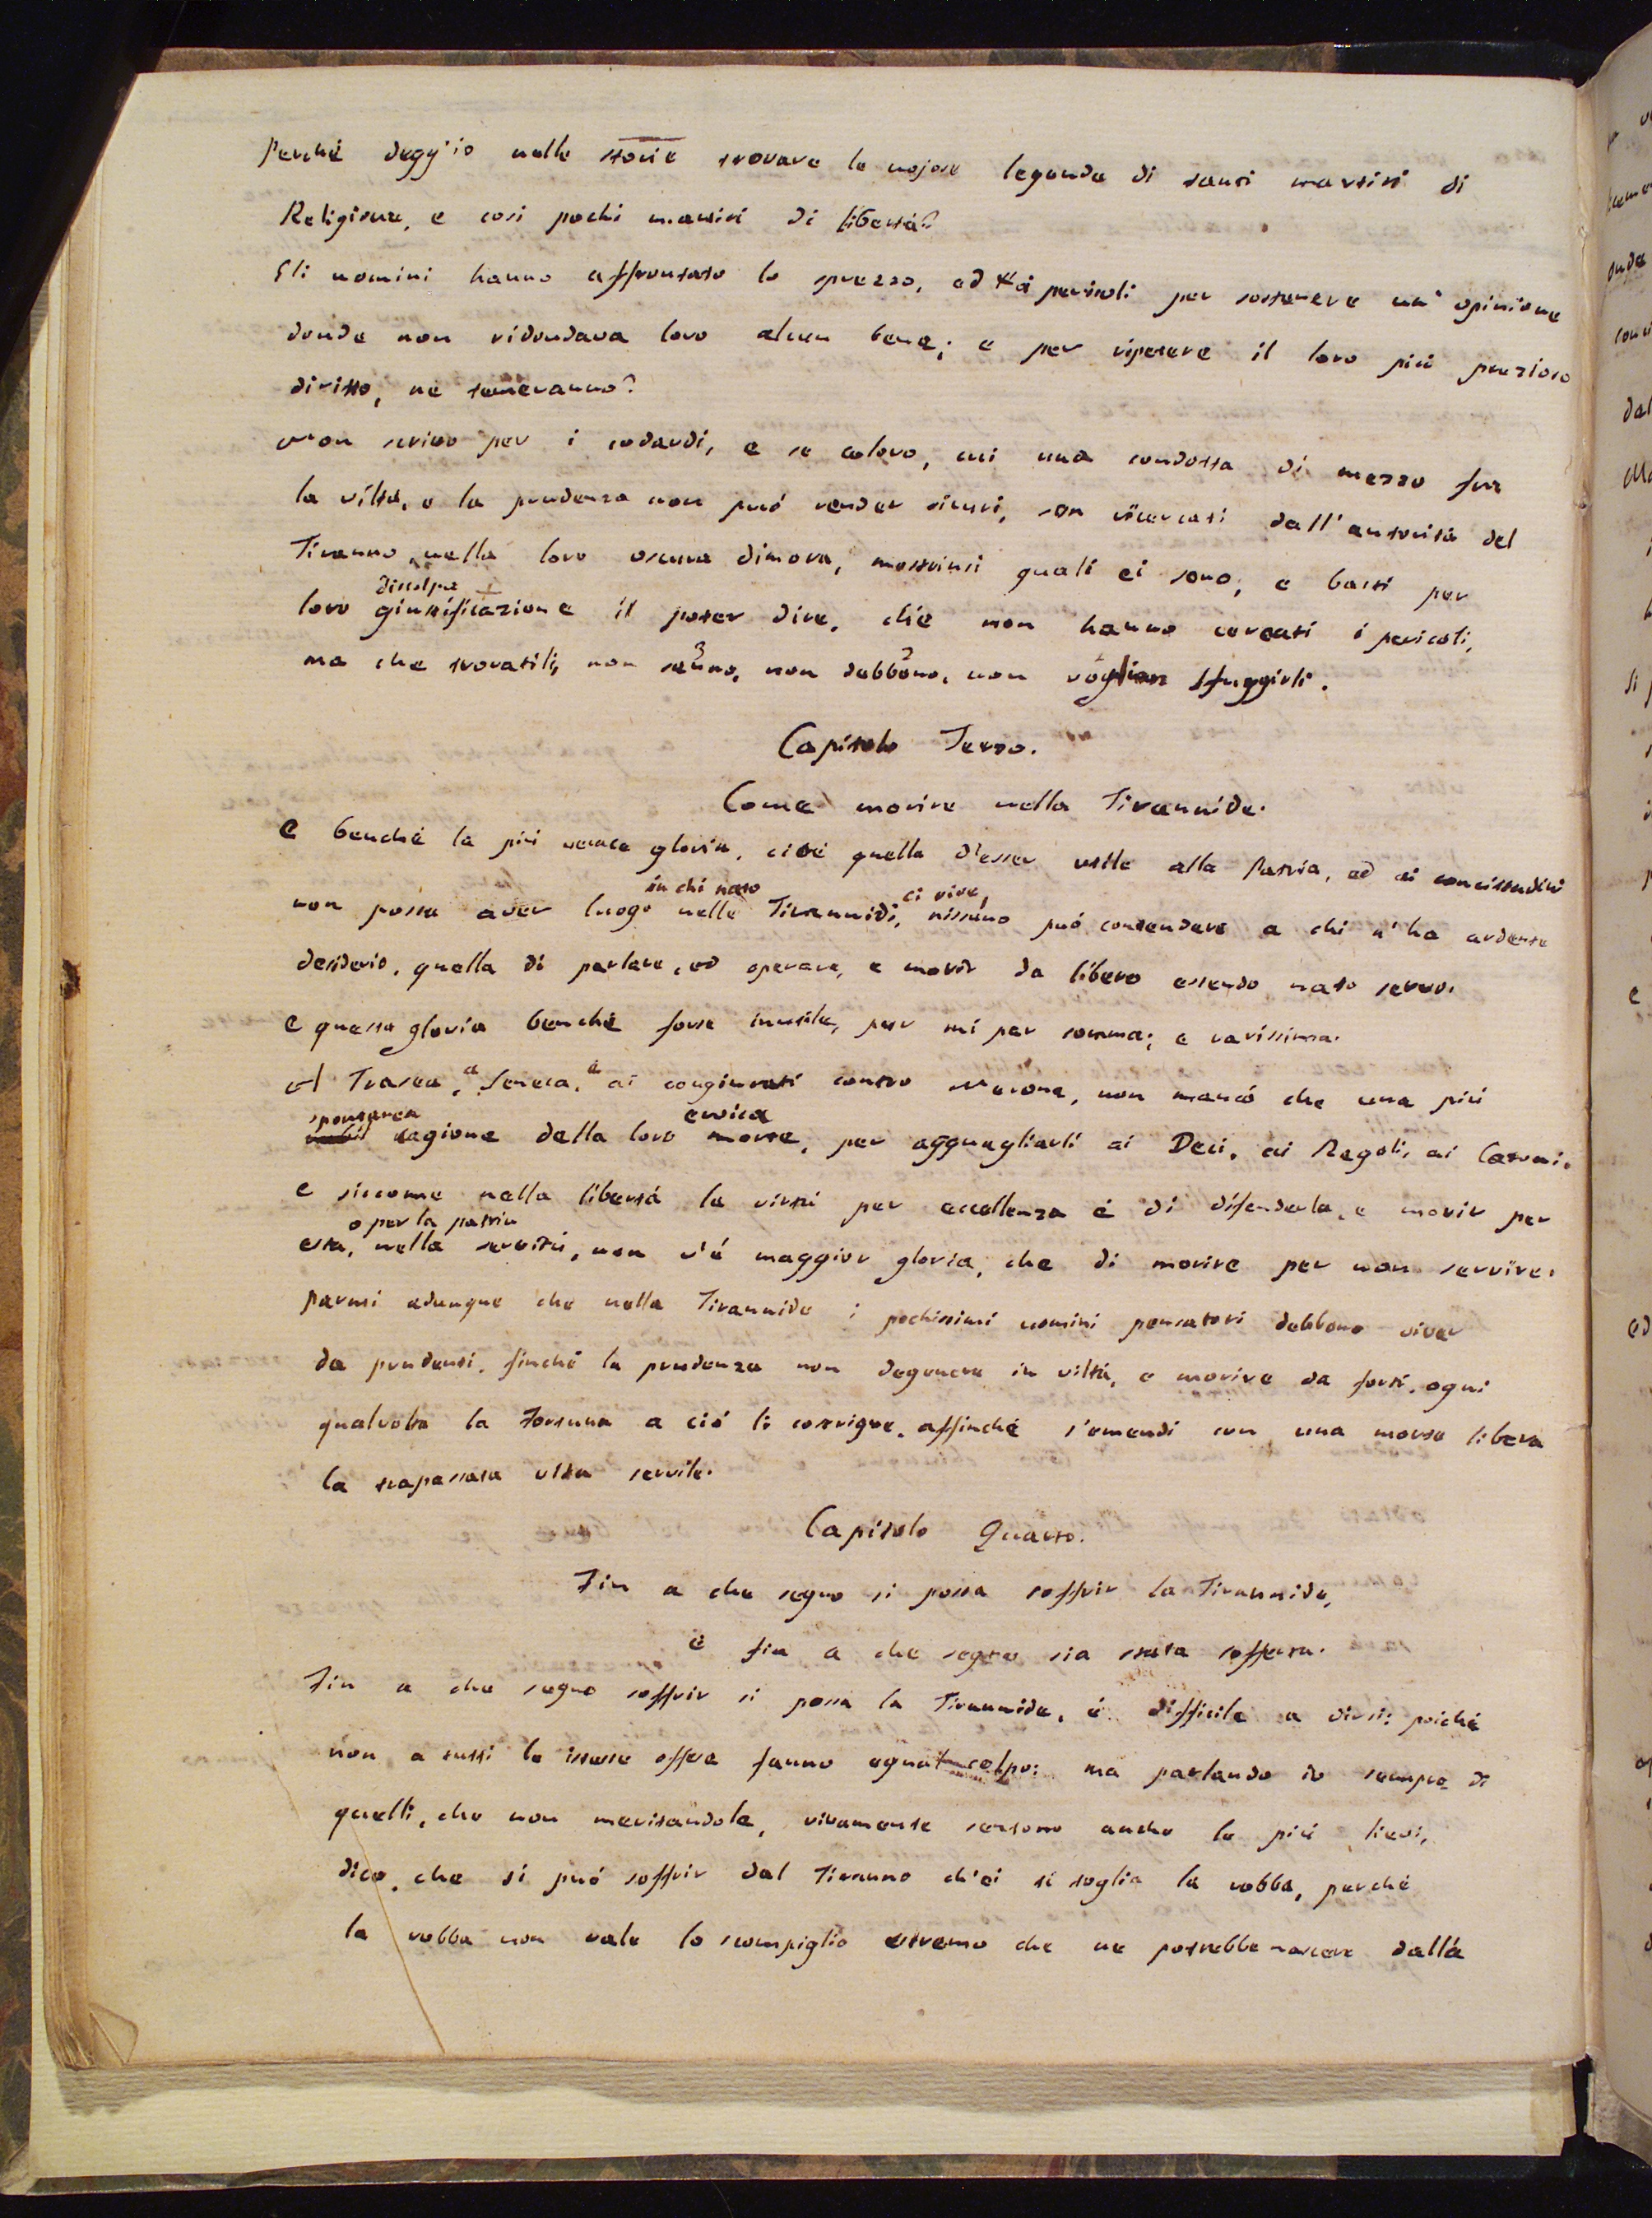 Perché degg'io nelle storie trovare le nojose legende di tanti martiri di
Religione, e così pochi martiri di libertà?
Gli uomini hanno affrontato lo sprezzo, ed i pericoli per sostenere un' opinione
donde non ridondava loro alcun bene; e per ripetere il loro più prezioso
diritto, ne temeranno?
Non scrivo per i codardi, e se coloro, cui una condotta di mezzo fra
la viltà, e la prudenza non può render sicuri, son ricercati dall'autorità del
Tiranno nella loro oscura dimora, mostrinsi quali ei sono, e basti per
discolpa
loro giustificazione il poter dire, che non hanno cercati i pericoli,
ma che trovatili, non sanno, non debbono, non voglion sfuggirli.
Capitolo Terzo.
Come morire nella Tirannide.
E benché la più verace gloria, cioè quella d'esser utile alla Patria, ed ai concittadini
in chi nato ci vive,
non possa aver luogo nelle Tirannidi, nissuno può contendere a chi n'ha ardente
desiderio, quella di parlare, ed operare, e morir da libero essendo nato servo.
e questa gloria benché forse inutile, pur mi par somma, e rarissima.
A Trasea, a Seneca, e ai congiurati contro Nerone, non mancò che una più
spontanea eroica
cagione della loro morte, per agguagliarli ai Deci, ai Regoli, ai Catoni.
e siccome nella libertà la virtù per eccellenza è di difenderla, e morir per
o per la patria
essa, nella servitù, non v'è maggior gloria, che di morire per non servire.
parmi adunque che nella Tirannide i pochissimi uomini pensatori debbono viver
da prudenti, finché la prudenza non degenera in viltà, e morire da forti, ogni
qualvolta la Fortuna a ciò li costrigne, affinché s'emendi con una morte libera
la trapassata vita servile.
Capitolo Quarto.
Fin a che segno si possa soffrir la Tirannide,
e fin a che segno sia stata sofferta.
Fin a che segno soffrir si possa la Tirannide, è difficile a dirsi: poiché
non a tutti le istesse offese fanno egual colpo: ma parlando io sempre di
quelli, che non meritandole, vivamente sentono anche le più lievi,
dico, che si può soffrir dal Tiranno ch'ei si toglia la robba, perché
la robba non vale lo scompiglio estremo che ne potrebbe nascere dalla